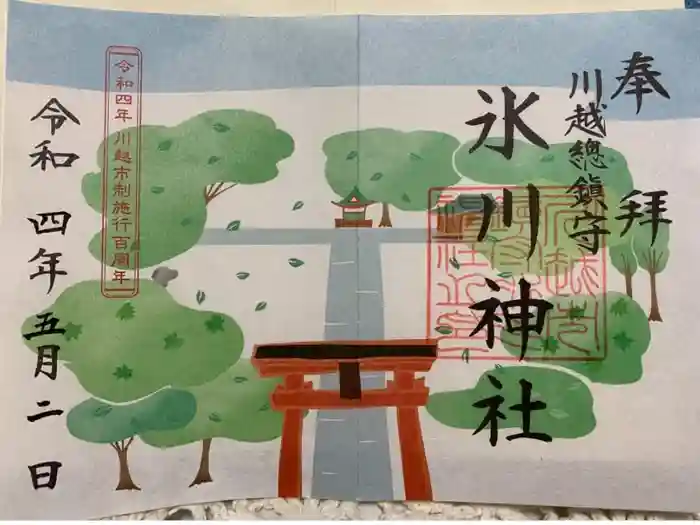 奉拝
川越總鎮守
氷川神社
令和四年 川越市制施行百周年
令和四年五月二日